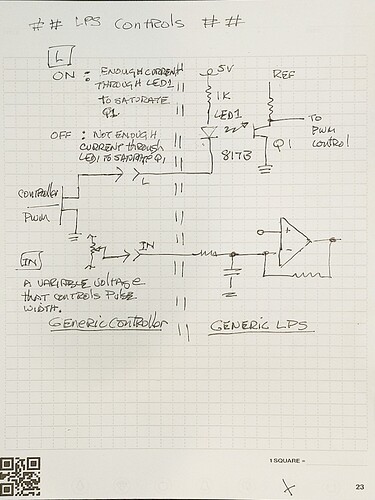 # # LPS Controls # #
L
ON : ENOUGH CURRENT
THROUGH LED1
TO SATURATE
Q1.
OFF : NOT ENOUGH
CURRENT THROUGH
LED1 TO SATURATE Q1
5V
REF
1K
LED1
TO
PWM
CONTROL
817B
Q1
L
CONTROLLER
PWM
IN
IN
+
-
A VARIABLE VOLTAGE
THAT CONTROLS PULSE
WIDTH.
GENERIC Controller
GENERIC LPS
1 SQUARE =
23